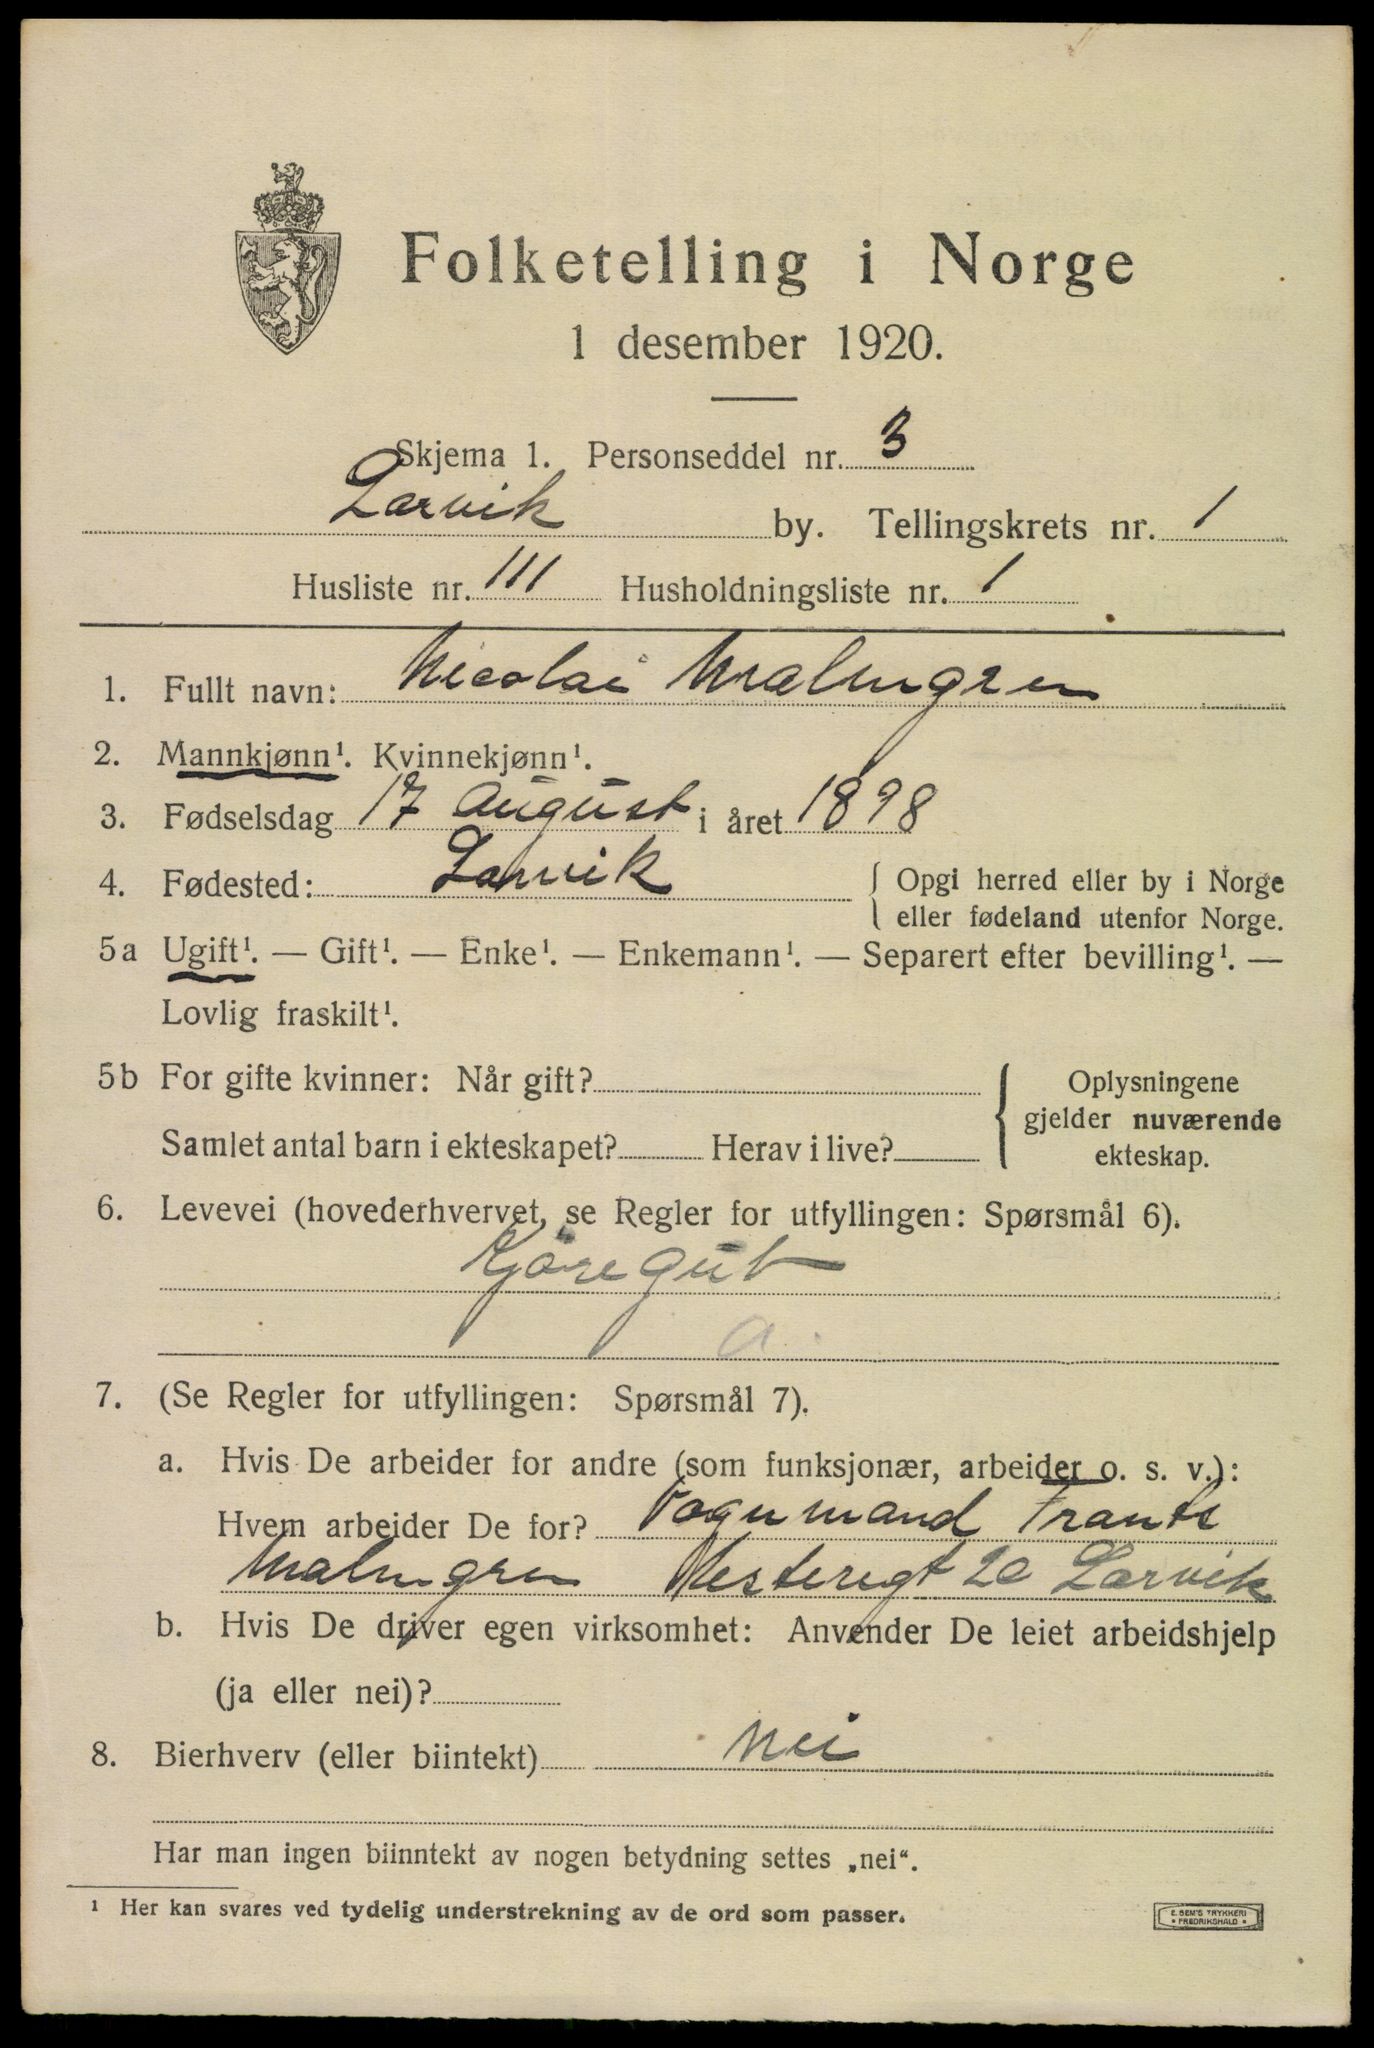 Folketelling i Norge
1 desember 1920.
Skjema 1. Personseddel nr. 3
Larvik by. Tellingskrets nr. 1
Husliste nr. 111 Husholdningsliste nr. 1
1. Fullt navn: Nicolai Malmgren
2. Mannkjønn¹. Kvinnekjønn¹.
3. Fødselsdag 17 August i året 1898
4. Fødested: Larvik { Opgi herred eller by i Norge
eller fødeland utenfor Norge.
5a Ugift¹. — Gift¹. — Enke¹. — Enkemann¹. — Separert efter bevilling¹. —
Lovlig fraskilt¹.
5b For gifte kvinner: Når gift? { Oplysningene
gjelder nuværende
Samlet antal barn i ekteskapet? Herav i live?
ekteskap.
6. Levevei (hovederhvervet, se Regler for utfyllingen: Spørsmål 6).
Kjöregut
a.
7. (Se Regler for utfyllingen: Spørsmål 7).
a. Hvis De arbeider for andre (som funksjonær, arbeider o. s. v.):
Hvem arbeider De for? Vognmand Frants
Malmgren Vesteregt 20 Larvik
b. Hvis De driver egen virksomhet: Anvender De leiet arbeidshjelp
(ja eller nei)?
8. Bierhverv (eller biintekt) Nei
Har man ingen biinntekt av nogen betydning settes „nei“.
¹ Her kan svares ved tydelig understrekning av de ord som passer.
E. SEM'S TRYKKERI
• FREDRIKSHALD •